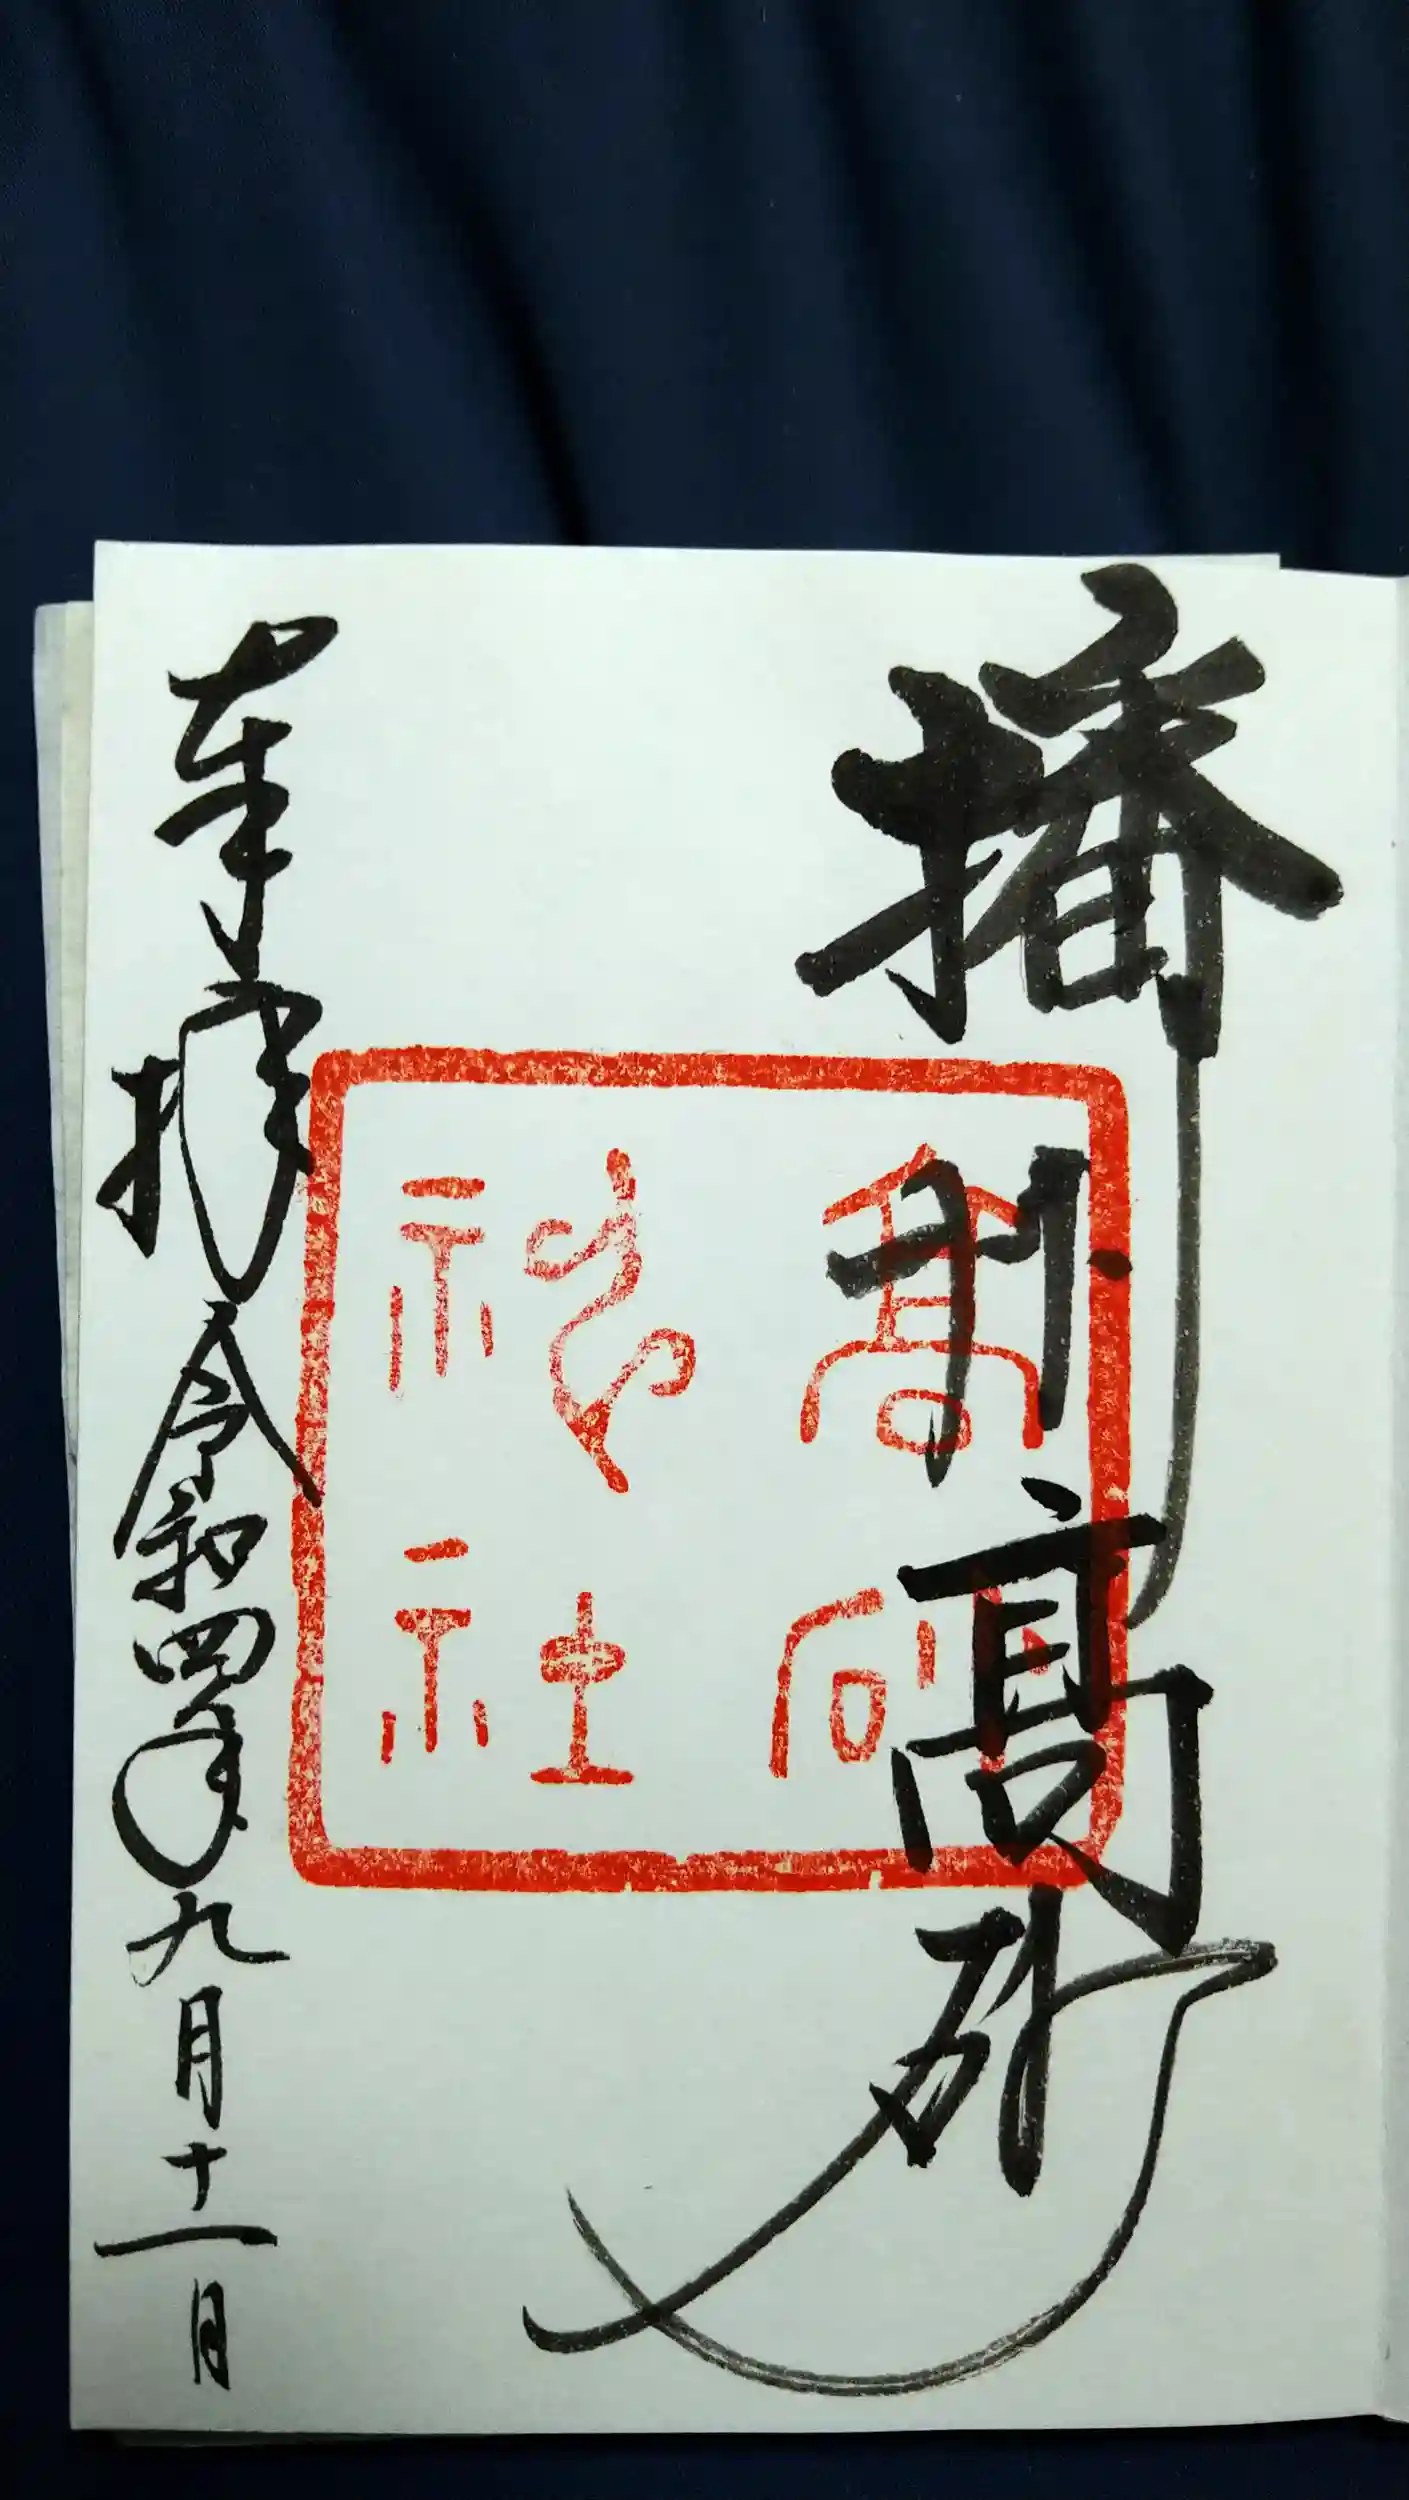 播州髙砂
高砂
神社
奉拝 令和四年九月十一日